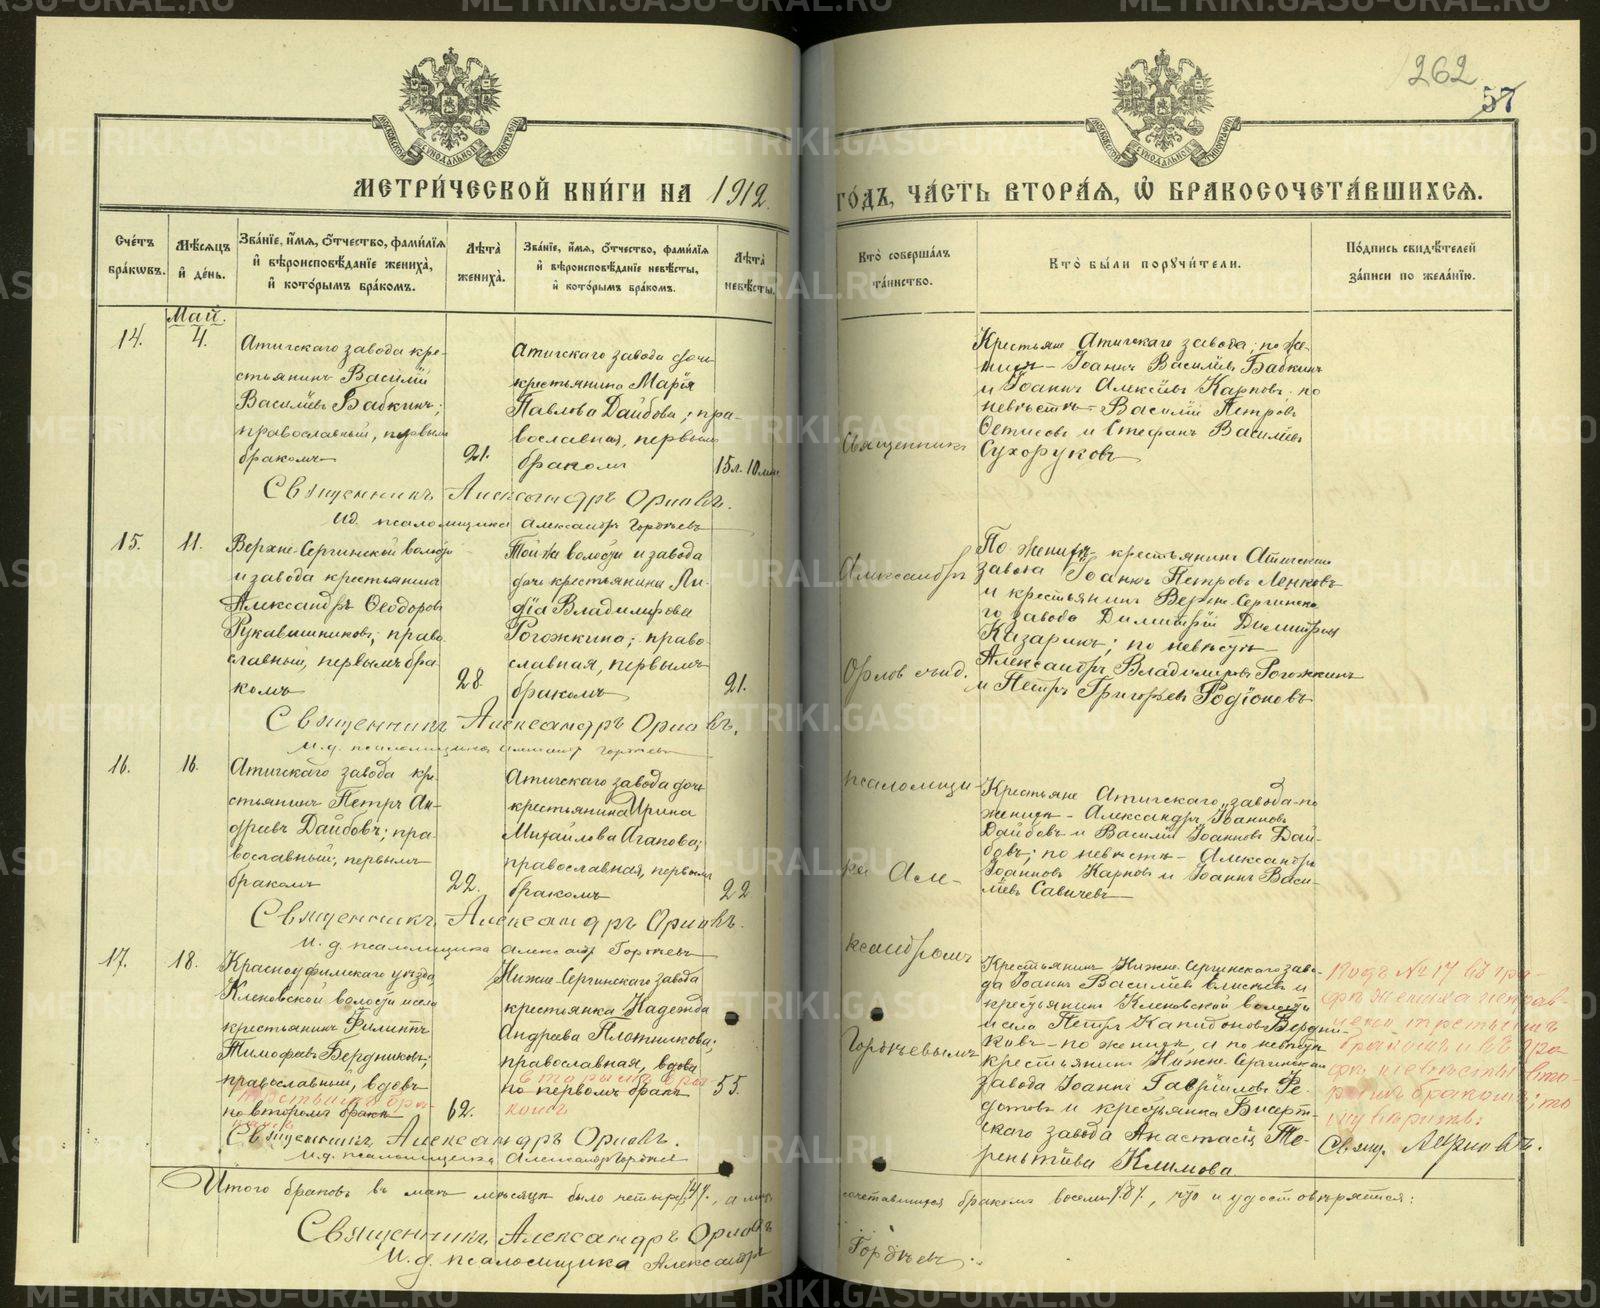 262
57
МЕТРИ́ЧЕСКОЙ КНИ́ГИ НА 1912 ГО́ДЪ, ЧА́СТЬ ВТОРА́Я, Ѿ БРАКОСОЧЕТА́ВШИХСЯ.
Сче́тъ бра́ковъ.
Мѣ́сяцъ и҆ де́нь.
Зва́нїе, и҆́мя, ѻ҆́тчество, фами́лїя и҆ вѣроисповѣ́данїе жениха̀, и҆ кото́рымъ бра́комъ.
Лѣта̀ жениха̀.
Зва́нїе, и҆́мя, ѻ҆́тчество, фами́лїя и҆ вѣроисповѣ́данїе невѣ́сты, и҆ кото́рымъ бра́комъ.
Лѣта̀ невѣ́сты.
Кто̀ соверша́лъ та́инство.
Кто̀ бы́ли поручи́тели.
По́дпись свидѣ́телей за́писи по жела́нїю.
Май.
14.
4.
Атигскаго завода кре-
стьянинъ Василій
Васильевъ Бабкинъ;
православный, первымъ
бракомъ
21.
Атигскаго завода дочь
крестьянина Марія
Павлова Даибова; пра-
вославная, первымъ
бракомъ
15 л. 10 мѣс.
Крестьяне Атигскаго завода: по же-
нихѣ - Іоаннъ Васильевъ Бабкинъ
и Іоаннъ Алексѣевъ Карповъ. по
невѣстѣ - Василій Петровъ
и Стефанъ Васильевъ
Сухоруковъ
Священникъ Александръ Орловъ.
И.д. псаломщика Александръ Гордѣевъ
15.
11.
Верхне-Сергинской волости
и завода крестьянинъ
Александръ Ѳеодоровъ
Рукавишниковъ; право-
славный, первымъ бра-
комъ
28
Той же волости и завода
дочь крестьянина Ли-
дія Владимірова
Рогожкина; право-
славная, первымъ
бракомъ
21.
По женихѣ - крестьянинъ Атигскаго
завода Іоаннъ Петровъ Ленковъ
и крестьянинъ Верхне-Сергинска-
го завода Димитрій Димитріевъ
Кизаринъ; по невѣстѣ
Александръ Владиміровъ Рогожкинъ
и Петръ Григорьевъ Родіоновъ
Священникъ Александръ Орловъ.
И.д. псаломщика Александръ Гордѣевъ
16.
16.
Атигскаго завода кре-
стьянинъ Петръ Ан-
дреевъ Даибовъ; пра-
вославный, первымъ
бракомъ
22.
Атигскаго завода дочь
крестьянина Ирина
Михайлова Агапова;
православная, первымъ
бракомъ
22
Крестьяне Атигскаго завода - по
женихѣ - Александръ Іоанновъ
Даибовъ и Василій Іоанновъ Даи-
бовъ; по невѣстѣ - Александръ
Іоанновъ Карповъ и Іоаннъ Васи-
льевъ Савичевъ
Священникъ Александръ Орловъ.
И.д. псаломщика Александръ Гордѣевъ
17.
18.
Красноуфимскаго уѣзда,
Кленовской волости и села
крестьянинъ Филиппъ
Тимофѣевъ Бердниковъ;
православный, вдовъ
третьимъ бра-
комъ
по второмъ бракѣ
62.
Нижне-Сергинскаго завода
крестьянка Надежда
Андреева Плотникова;
православная, вдова
вторымъ бра-
по первомъ бракѣ
комъ
55.
Крестьянинъ Нижне-Сергинскаго заво-
да Іоаннъ Васильевъ и
крестьянинъ Кленовской волости
и села Петръ Капидоновъ Бердни-
ковъ - по женихѣ, а по невѣстѣ
крестьянинъ Нижне-Сергинскаго
завода Іоаннъ Гавріиловъ Ѳе-
дотовъ и крестьянка Бисерт-
скаго завода Анастасія Те-
рентьева Климова
Подъ № 17 въ гра-
фѣ жениха исправ-
лено третьимъ
бракомъ и въ гра-
фѣ невѣсты вто-
рымъ бракомъ; то
и вѣрить.
Свящ. А. Орловъ.
Священникъ Александръ Орловъ.
И.д. псаломщика Александръ Гордѣевъ
Священникъ
Александръ
Орловъ съ и.д.
псаломщи-
ка Але-
ксандромъ
Гордѣевымъ
Итого браковъ въ маѣ мѣсяцѣ было четыре /4/, а лицъ сочетавшихся бракомъ восемь /8/, что и удостовѣряется:
Священникъ Александръ Орловъ
И.д. псаломщика Александръ Гордѣевъ.
METRIKI.GASO-URAL.RU